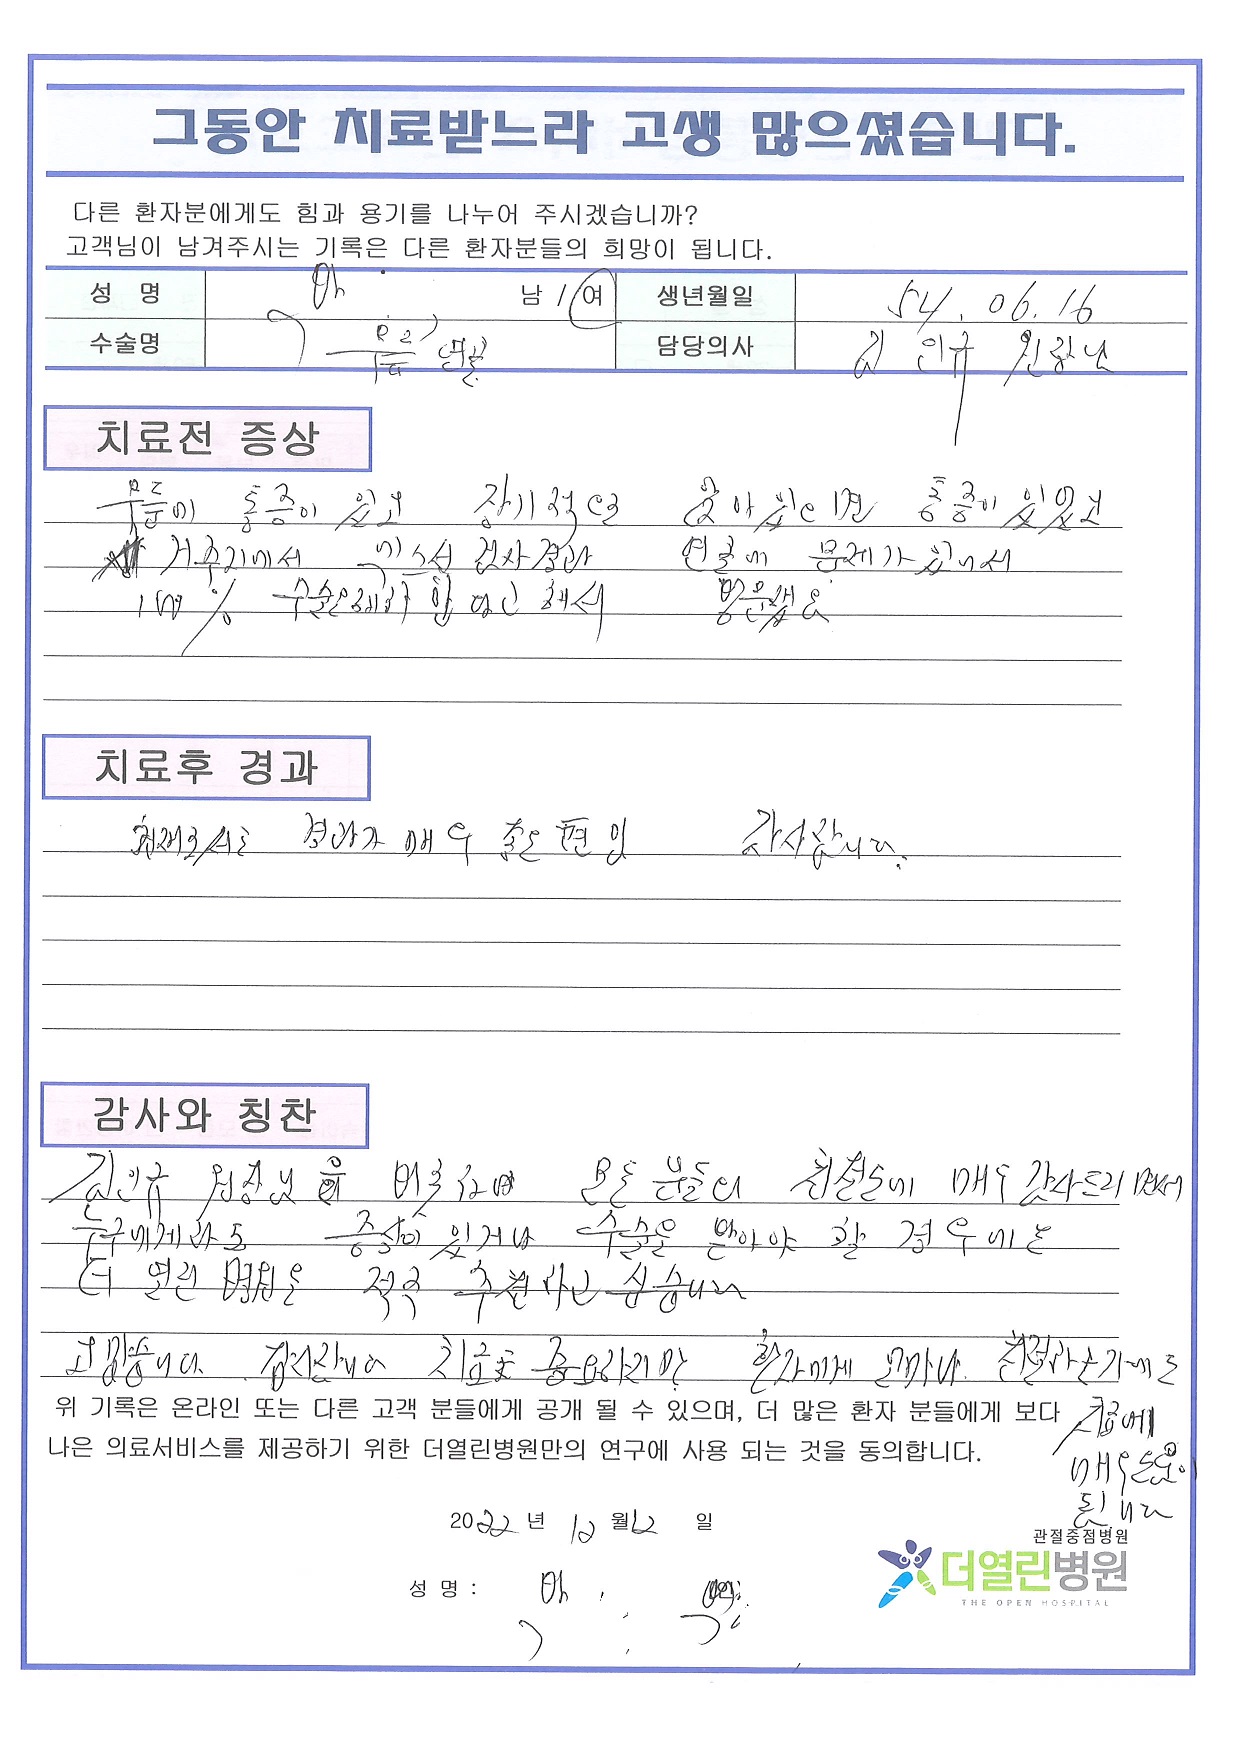 그동안 치료받느라 고생 많으셨습니다.
다른 환자분에게도 힘과 용기를 나누어 주시겠습니까?
고객님이 남겨주시는 기록은 다른 환자분들의 희망이 됩니다.
성 명 남 / 여 생년월일 54. 06. 16
수술명 무릎 연골 담당의사 김 인규 원장님
치료전 증상
무릎에 통증이 있고 장기적으로 앉아있으면 통증이 있었고
거주지에서 검사결과 연골에 문제가 있어서
100% 수술을해야 한다고 해서 방문했음
치료후 경과
현재로서는 경과가 매우 좋은 편임 감사합니다.
감사와 칭찬
김인규 원장님을 비롯하여 모든 분들의 친절도에 매우 감사드리면서
누구에게라도 증상이 있거나 수술을 받아야 할 경우에는
더 열린 병원을 적극 추천하고 싶습니다
고맙습니다. 치료도 중요하지만 환자에게 얼마나 친절하는가에도
위 기록은 온라인 또는 다른 고객 분들에게 공개 될 수 있으며, 더 많은 환자 분들에게 보다
나은 의료서비스를 제공하기 위한 더열린병원만의 연구에 사용 되는 것을 동의합니다.
치료에
매우 도움이
됩니다
2022 년 12 월 12 일
관절중점병원
더열린병원
THE OPEN HOSPITAL
성 명 :